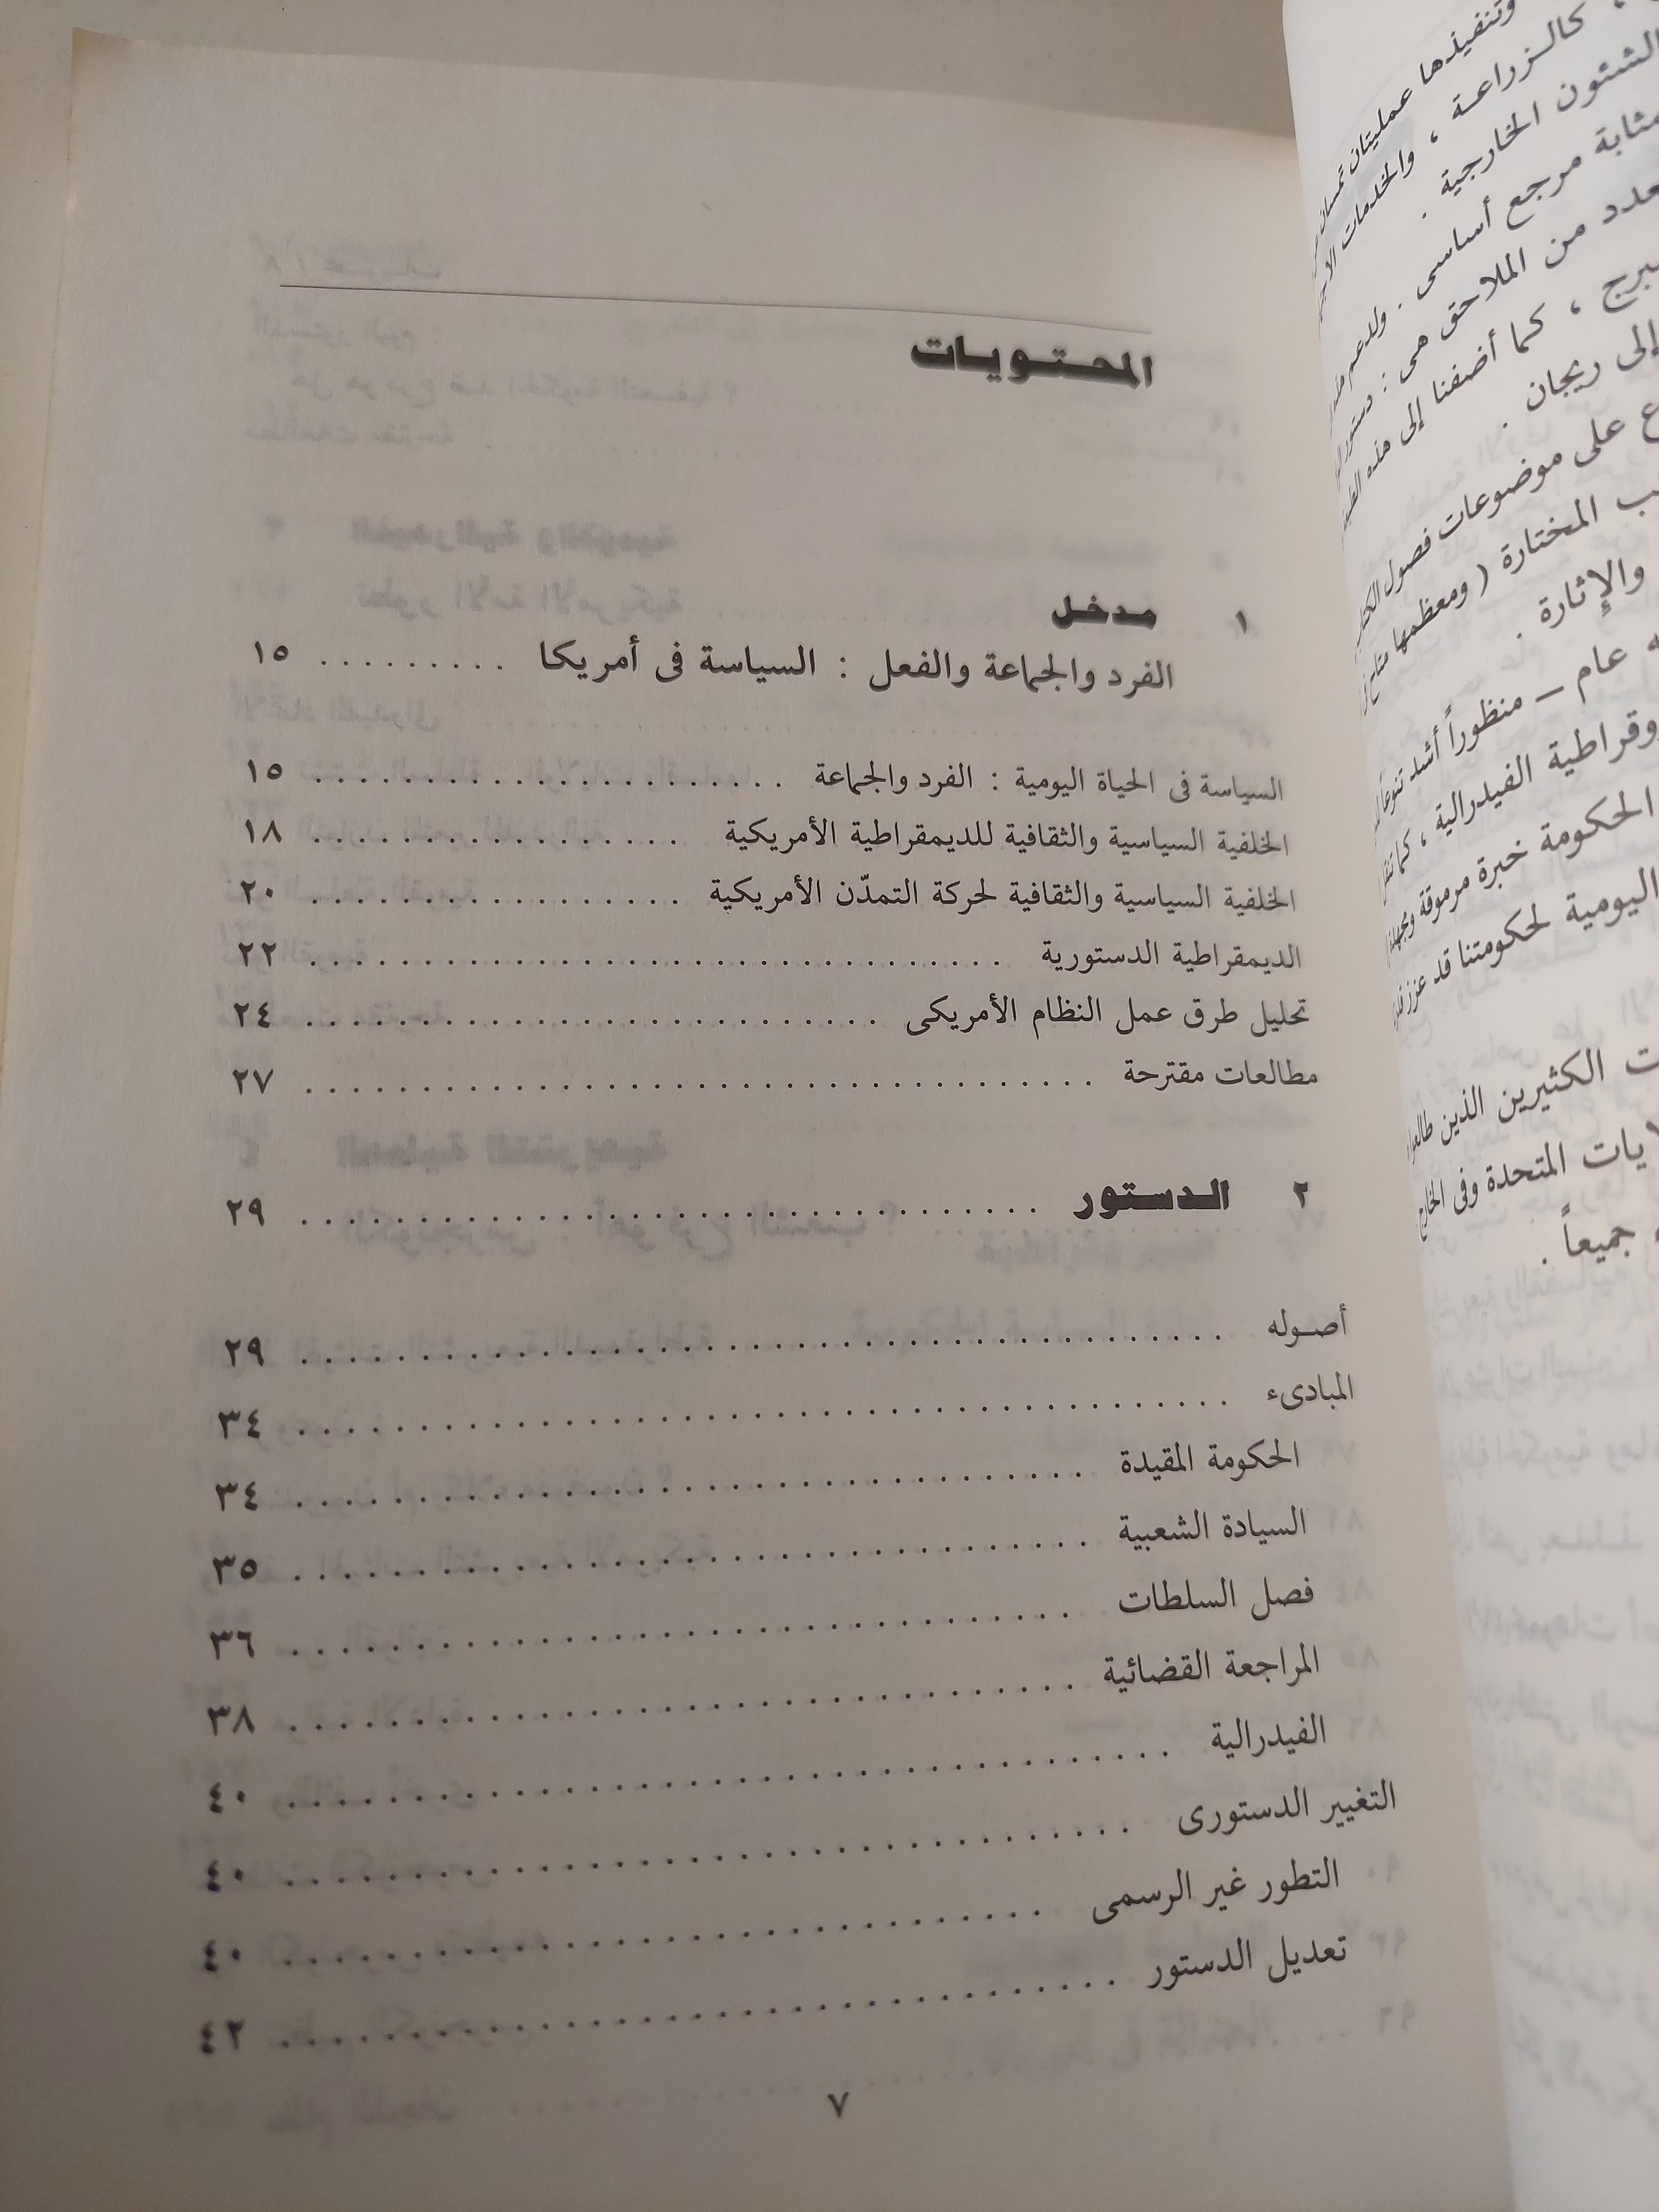 المحتويات
١ مدخل
الفرد والجماعة والفعل : السياسة فى أمريكا ......... ١٥
السياسة فى الحياة اليومية : الفرد والجماعة ............... ١٥
الخلفية السياسية والثقافية للديمقراطية الأمريكية ............ ١٨
الخلفية السياسية والثقافية لحركة التمدّن الأمريكية ............ ٢٠
الديمقراطية الدستورية ...................... ٢٢
تحليل طرق عمل النظام الأمريكى .................. ٢٤
مطالعات مقترحة ......................... ٢٧
٢ الدستور ........................ ٢٩
أصوله .............................. ٢٩
المبادىء .............................. ٣٤
الحكومة المقيدة ......................... ٣٤
السيادة الشعبية ......................... ٣٥
فصل السلطات ......................... ٣٦
المراجعة القضائية ......................... ٣٨
الفيدرالية ............................ ٤٠
التغيير الدستورى .......................... ٤٠
التطور غير الرسمى ....................... ٤٠
تعديل الدستور .......................... ٤٢
٧
وتنفيذها عمليتان
كالزراعة ، والخدمات
الشئون الخارجية .
مرجع أساسى . ولدعم
من الملاحق هى : دستور
، كما أضفنا إلى هذه
إلى ريجان .
على موضوعات فصول الكتاب
المختارة ( ومعظمها متاح
والإثارة .
عام – منظوراً أشد تنوعاً
الفيدرالية ، كما
الحكومة خبرة مرموقة
اليومية لحكومتنا قد عزز
الكثيرين الذين
المتحدة وفى الخارج
جميعاً .